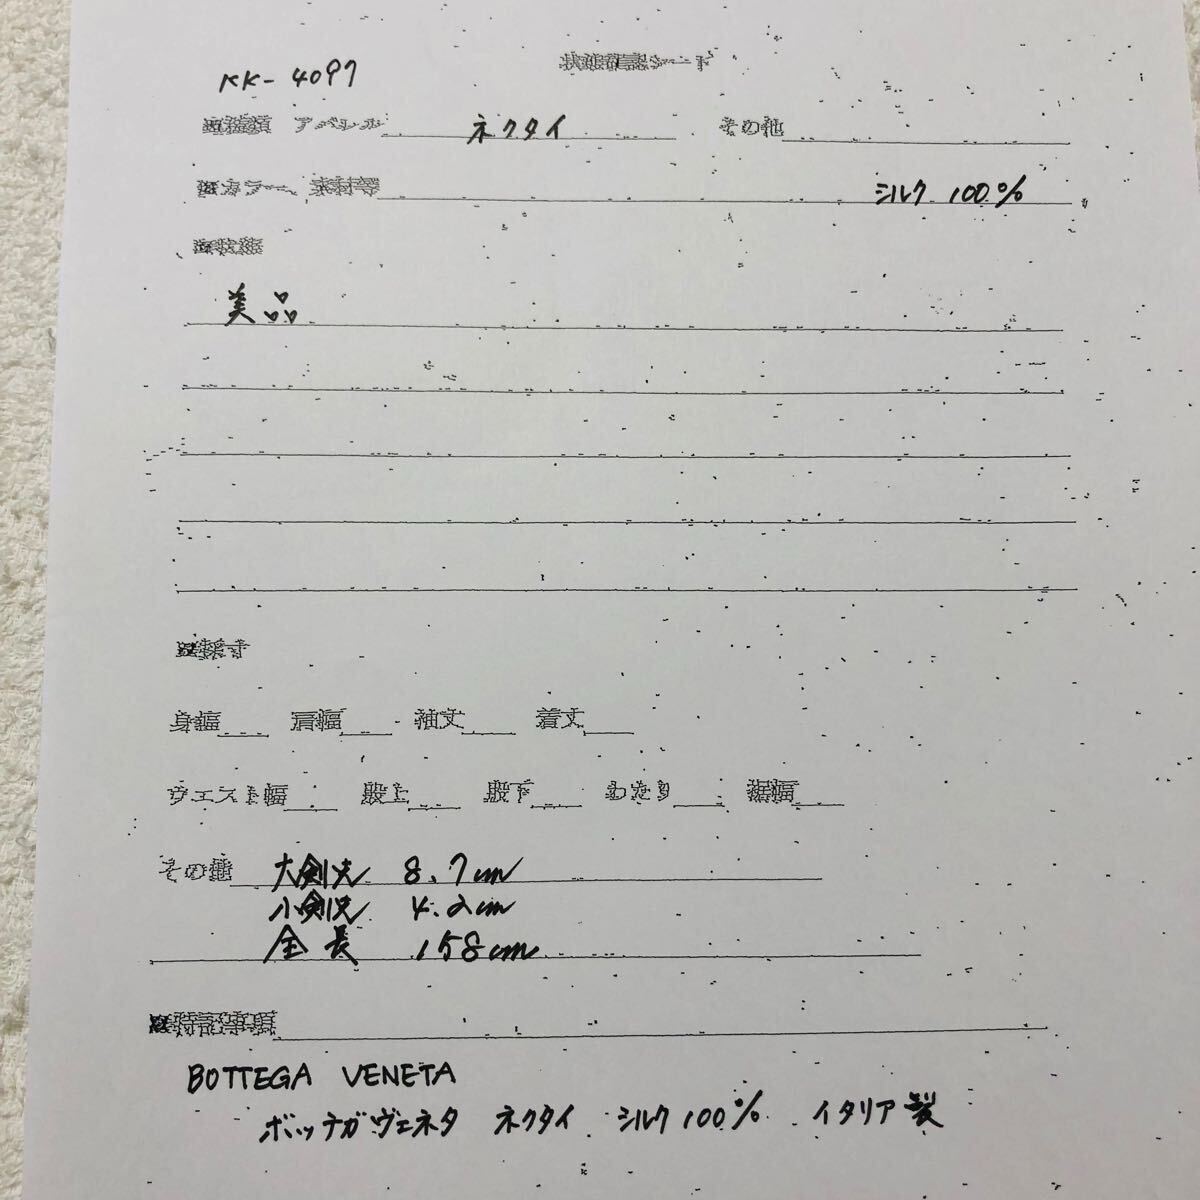 状態確認シート
KK-4097
■種類 アパレル ネクタイ その他
■カラー、素材等 シルク 100%
■状態
美品
■採寸
身幅 肩幅 袖丈 着丈
ウエスト幅 股上 股下 わたり 裾幅
その他 大剣先 8.7cm
小剣先 4.2cm
全長 158cm
■特記事項
BOTTEGA VENETA
ボッテガヴェネタ ネクタイ シルク100% イタリア製